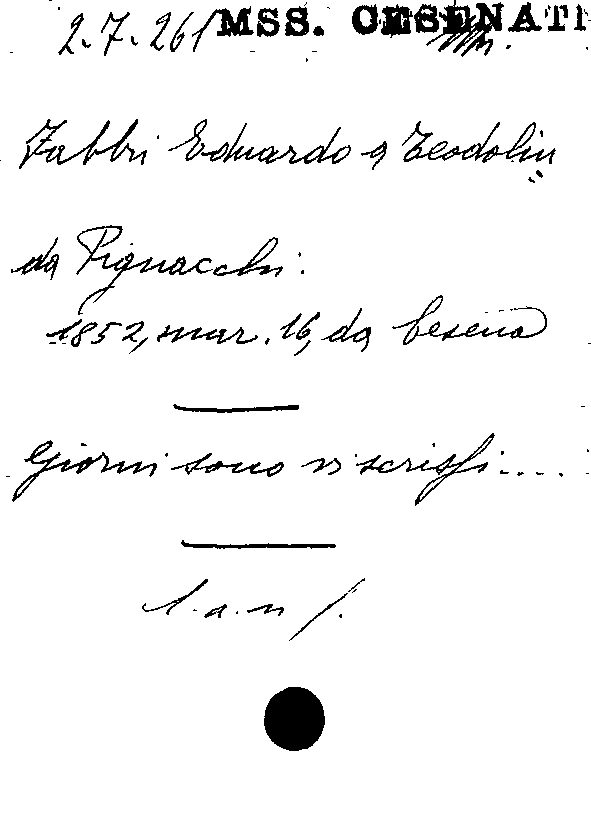 2.7.261 MSS. CESENATI
Fabbri Eduardo a Teodolin
da Pignacchi.
1852, mar. 16, da Cesena
Giorni sono vi scrissi....
l. a. n f.